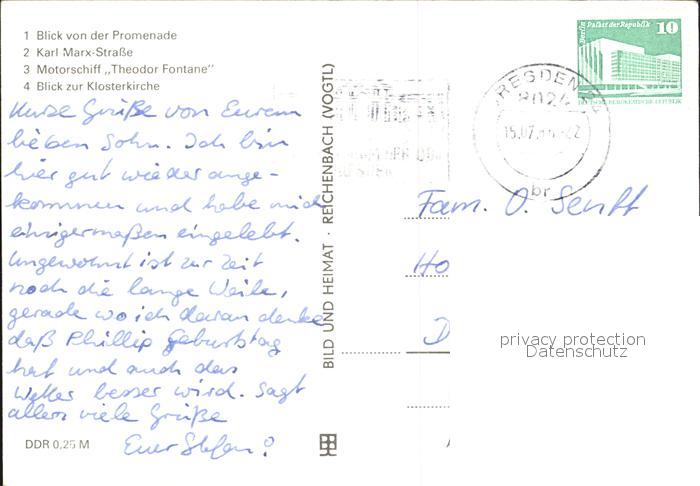 1 Blick von der Promenade
2 Karl Marx-Straße
3 Motorschiff „Theodor Fontane“
4 Blick zur Klosterkirche
Kurze Grüße von Eurem
lieben Sohn. Ich bin
hier gut wieder ange-
kommen und habe mich
einigermaßen eingelebt.
Ungewohnt ist zur Zeit
noch die lange Weile,
gerade wo ich daran denke
daß Phillip Geburtstag
hat und auch das
Wetter besser wird. Sagt
allen viele Grüße
Euer Stefan
DDR 0,25 M
BILD UND HEIMAT · REICHENBACH (VOGTL)
Berlin Palast der Republik 10
DEUTSCHE DEMOKRATISCHE REPUBLIK
DRESDEN
15.07.
br
Fam. O. Senft
Ho
D
privacy protection
Datenschutz